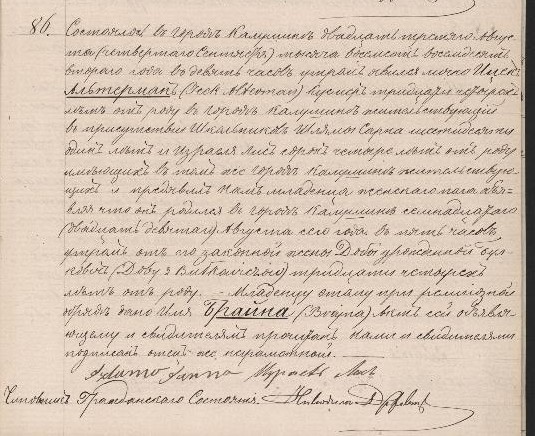 86. Состоялся въ городѣ Калушинѣ двадцать третьяго Авгус-
та (четвертаго Сентября) тысяча восемьсотъ восемдесятъ
втораго года въ девять часовъ утра. Явился лично Ицекъ
Альтерманъ (Icek Alterman) тридцати четырехъ
лѣтъ отъ роду въ городѣ Калушинѣ жительствующій
въ присутствіи Школьниковъ Шлямы шестидесяти
лѣтъ и Израеля сорокъ четыре лѣтъ отъ роду
имѣющихъ въ томъ же городѣ Калушинѣ жительствую-
щихъ и предъявилъ намъ младенца женскаго пола объя-
вляя что онъ родился въ городѣ Калушинѣ семнадцатаго
(двадцать девятаго) Августа сего года въ пять часовъ
утра отъ его законной жены Добы урожденной
(Doby z) тридцати четырехъ
лѣтъ отъ роду. — Младенцу этому при религіозномъ
обрядѣ дано имя Брайна (Brajna) Актъ сей объявля-
ющему и свидѣтелямъ прочитанъ Нами и свидѣтелями
подписанъ отецъ же неграмотенъ. —
Чиновникъ Гражданскаго Состоянія.